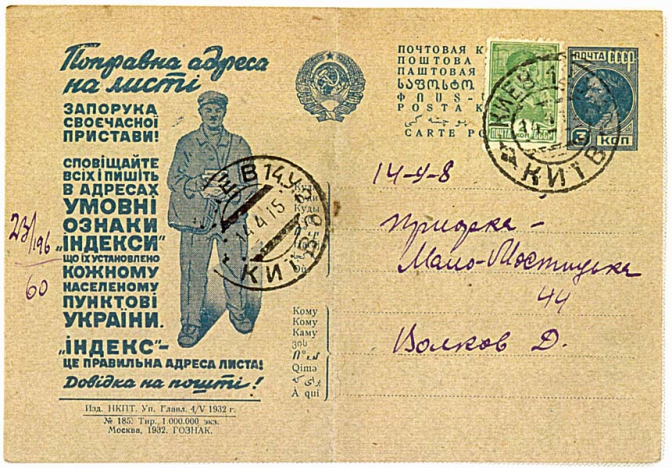 Поправна адреса
на листі
ЗАПОРУКА
СВОЄЧАСНОЇ
ПРИСТАВИ!
СПОВІЩАЙТЕ
ВСІХ І ПИШІТЬ
В АДРЕСАХ
УМОВНІ
ОЗНАКИ
„ІНДЕКСИ“
ЩО ЇХ УСТАНОВЛЕНО
КОЖНОМУ
НАСЕЛЕНОМУ
ПУНКТОВІ
УКРАЇНИ.
„ІНДЕКС“-
ЦЕ ПРАВИЛЬНА АДРЕСА ЛИСТА!
Довідка на пошті!
Изд. НКПТ. Уп. Главл. 4/V 1932 г.
№ 185. Тир. 1.000.000 экз.
Москва, 1932. ГОЗНАК.
23/196
60
ПОЧТОВАЯ К
ПОШТОВА
ПАШТОВАЯ
ՓՈՍ-
POSTA K
CARTE PO
ПОЧТА СССР
КОП
КИЕВ
КИЇВ
14.У
14.4.15
КИЇВ
14-У-8
Приорка -
Мало-Мостицька
44
Волков Д.
Куды
Кому
Кому
Каму
Qimə
À qui